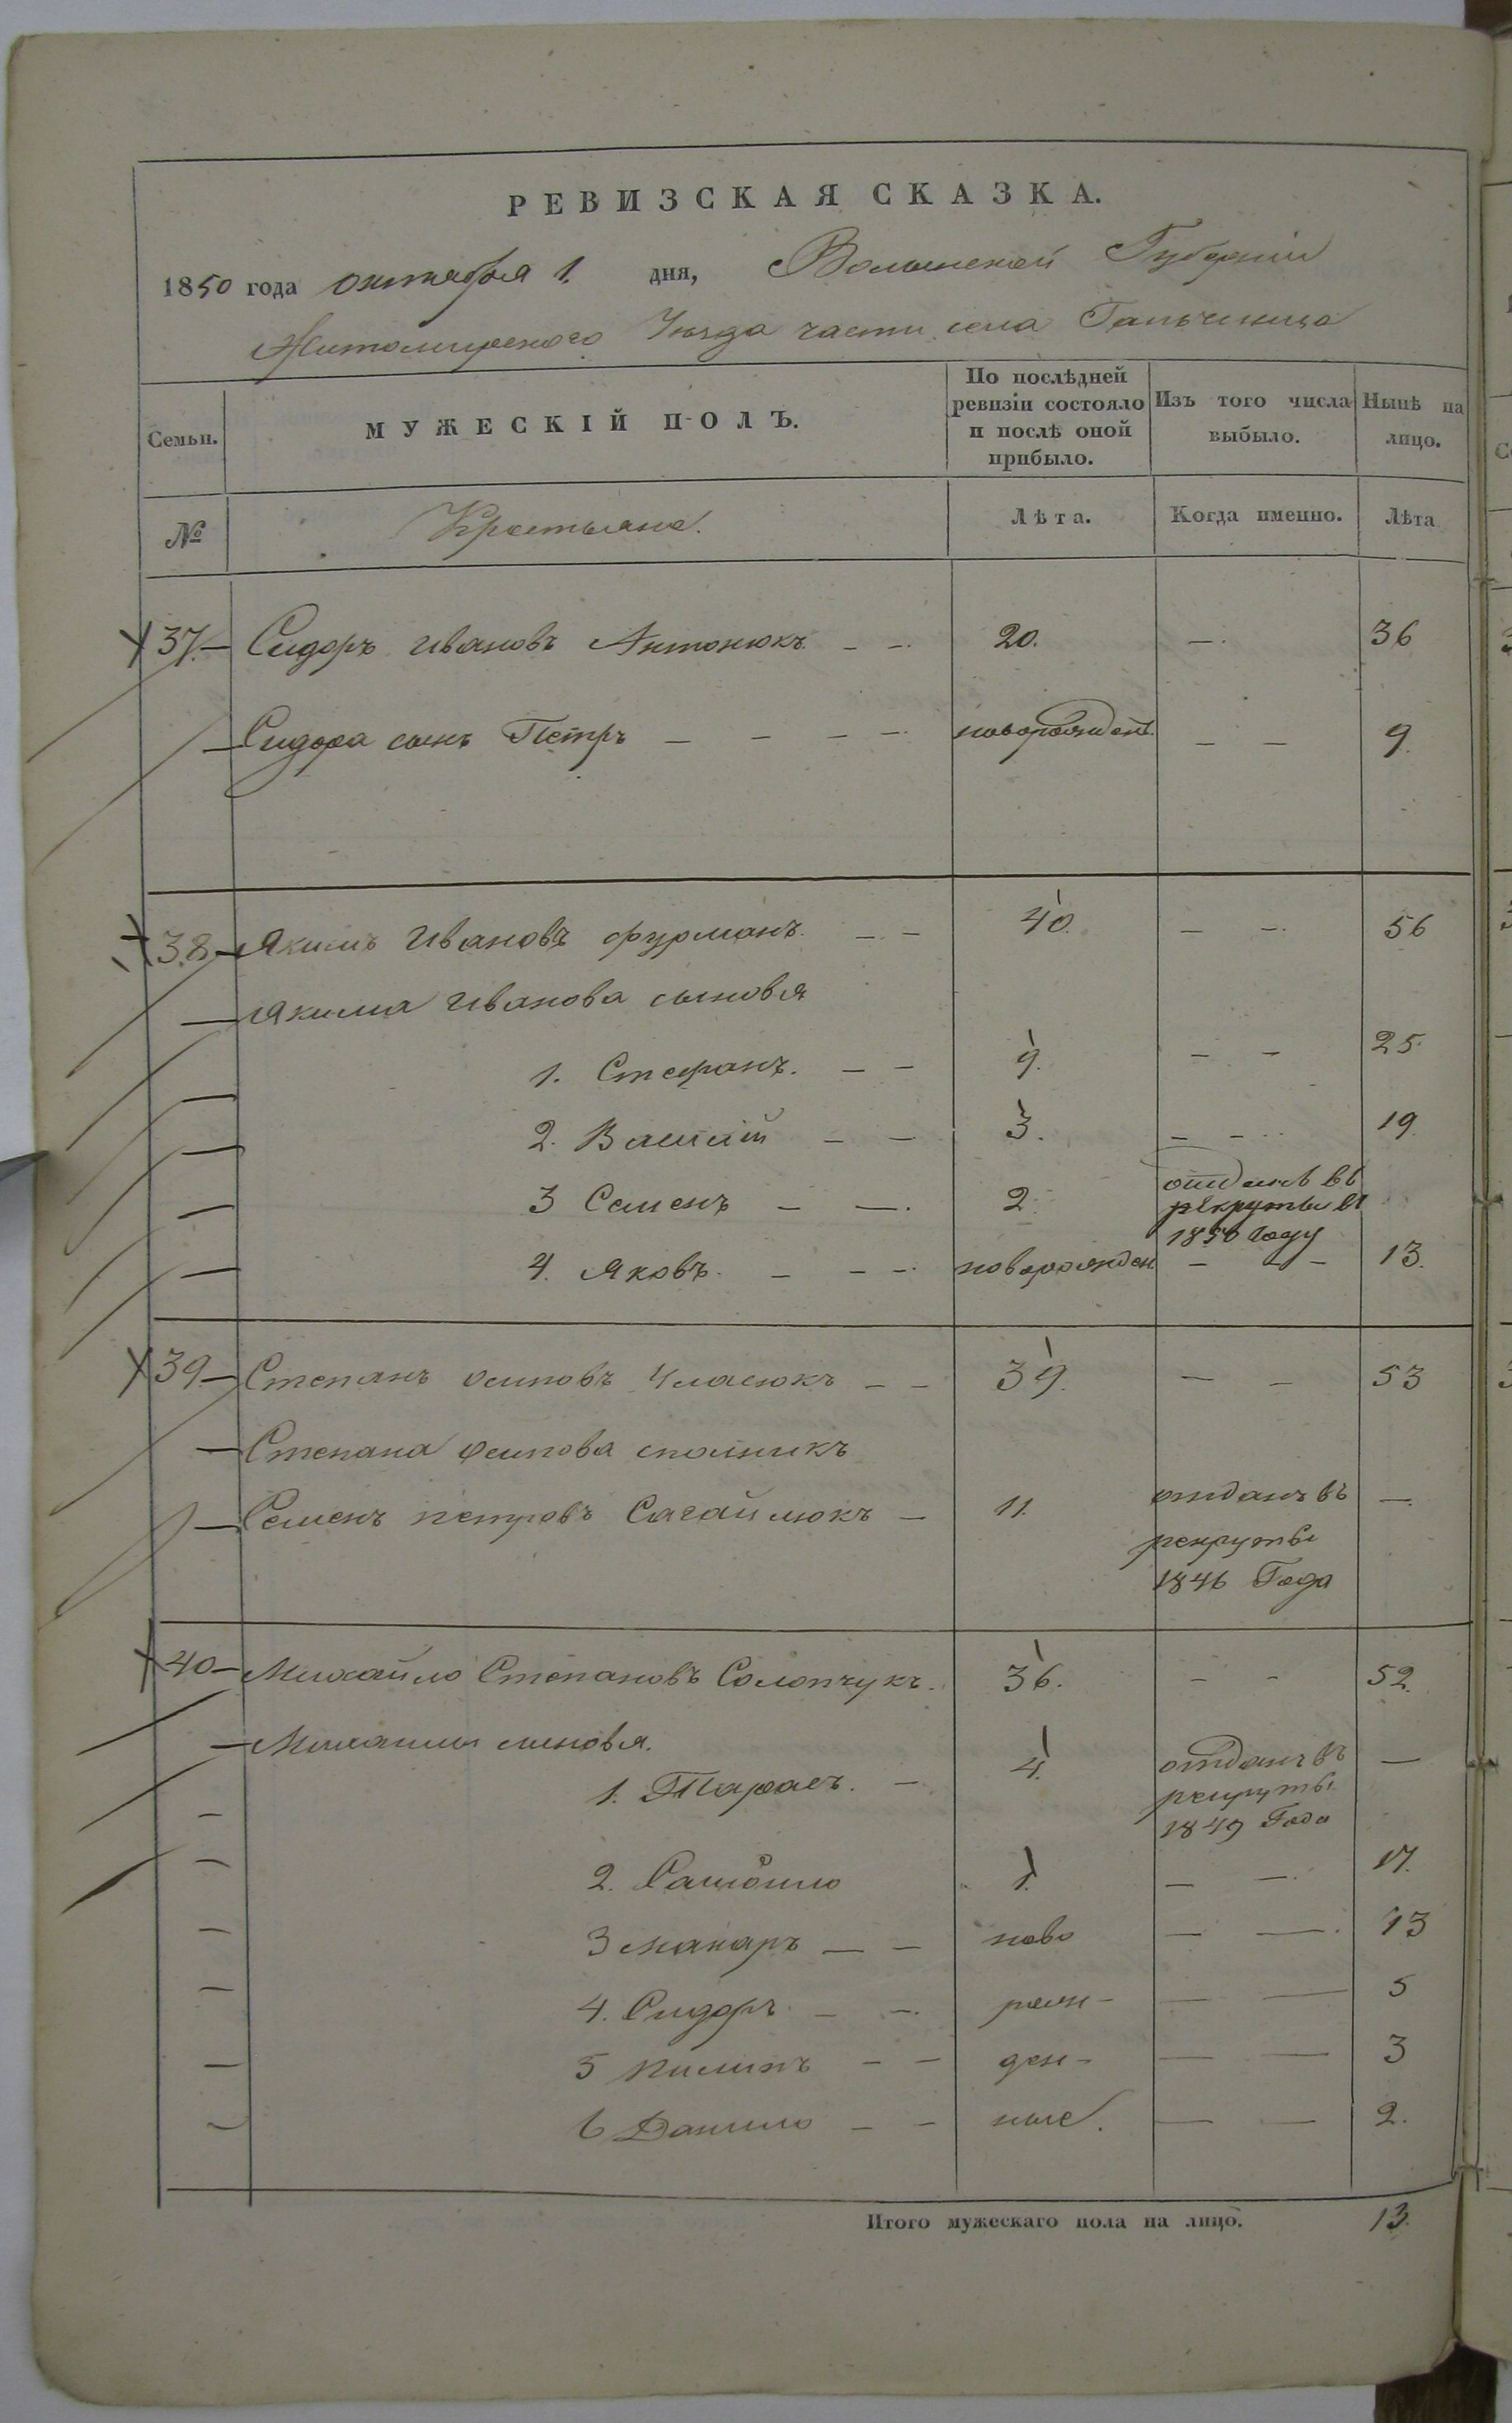 РЕВИЗСКАЯ СКАЗКА.
1850 года октября 1. дня, Волынской Губернии
Житомирского Уезда части села Гальчинца
Семьи. МУЖЕСКІЙ ПОЛЪ. По послѣдней ревизіи состояло и послѣ оной прибыло. Изъ того числа выбыло. Нынѣ на лицо.
№ Крестьяне. Лѣта. Когда именно. Лѣта
37. Сидоръ Ивановъ Антонюкъ — —. 20. —. 36
Сидора сынъ Петръ — — — —. новорожден. — — 9.
38 Якимъ Ивановъ фурманъ. — — 40. — —. 56
Якима Иванова сыновья
1. Стефанъ. — — 9. — — 25.
2. Василій — — 3. — — 19.
3 Семенъ — —. 2. отданъ въ
рекруты въ
1850 году
4. Яковъ. — — —. новорожден — — — 13.
39 Степанъ Осиповъ Власюкъ — — 39. — — 53
Степана Осипова
Семенъ петровъ Сагайлюкъ — 11. отданъ въ —.
рекруты
1846 Года
40 Михайло Степановъ Солопчукъ. 36. — — 52.
Михайлы сыновья.
1. Тарасъ. — 4. отданъ въ —
рекруты
1849 Года
2. Самойло 1. — —. 17.
3 Макаръ — — ново — —. 13
4. Сидоръ — —. рож- — — 5
5 Пилипъ — — ден- — — 3
6 Данило — — ные. — — 2.
Итого мужескаго пола на лицо. 13.